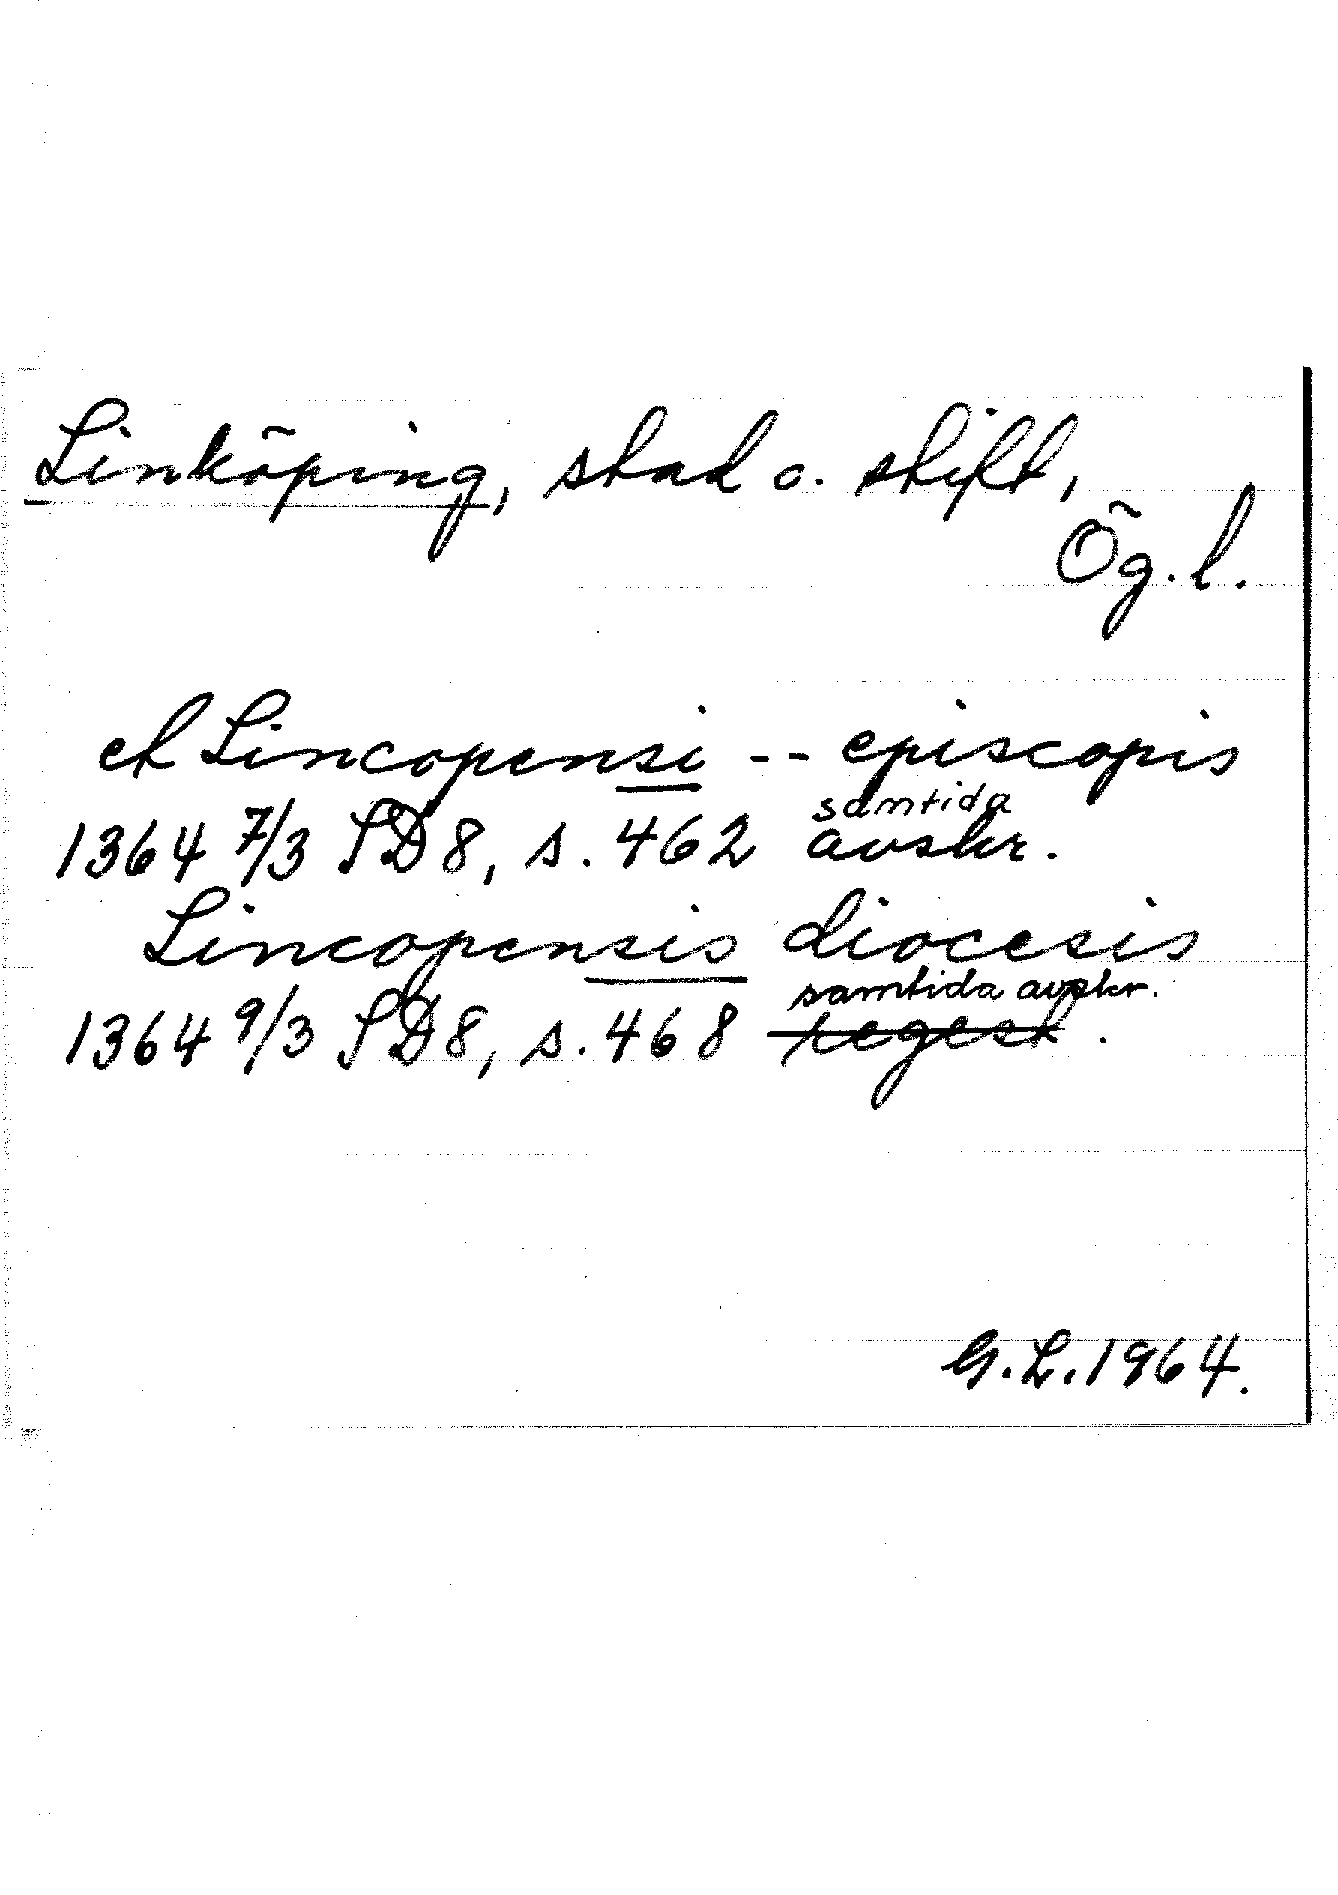 Linköping, stad o. stift,
Ög.l.
et Lincopensi -- episcopis
samtida
1364 7/3 SD8, s. 462 avskr.
Lincopensis diocesis
samtida avskr.
1364 9/3 SD8, s. 468 regest.
G.L.1964.